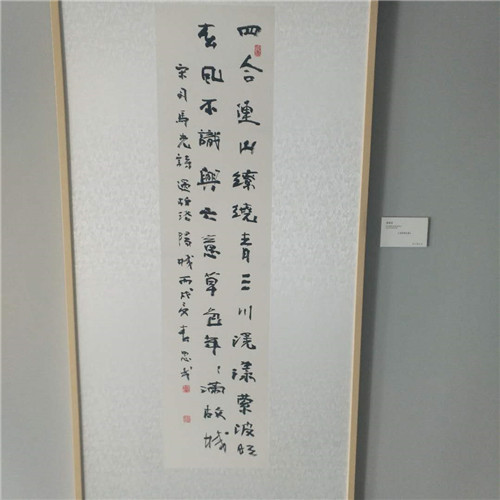 四合連山繚繞青三川滉漾素波明
春風不識興亡意草色年〻滿故城
宋司馬光詩過故洛陽城丙戌